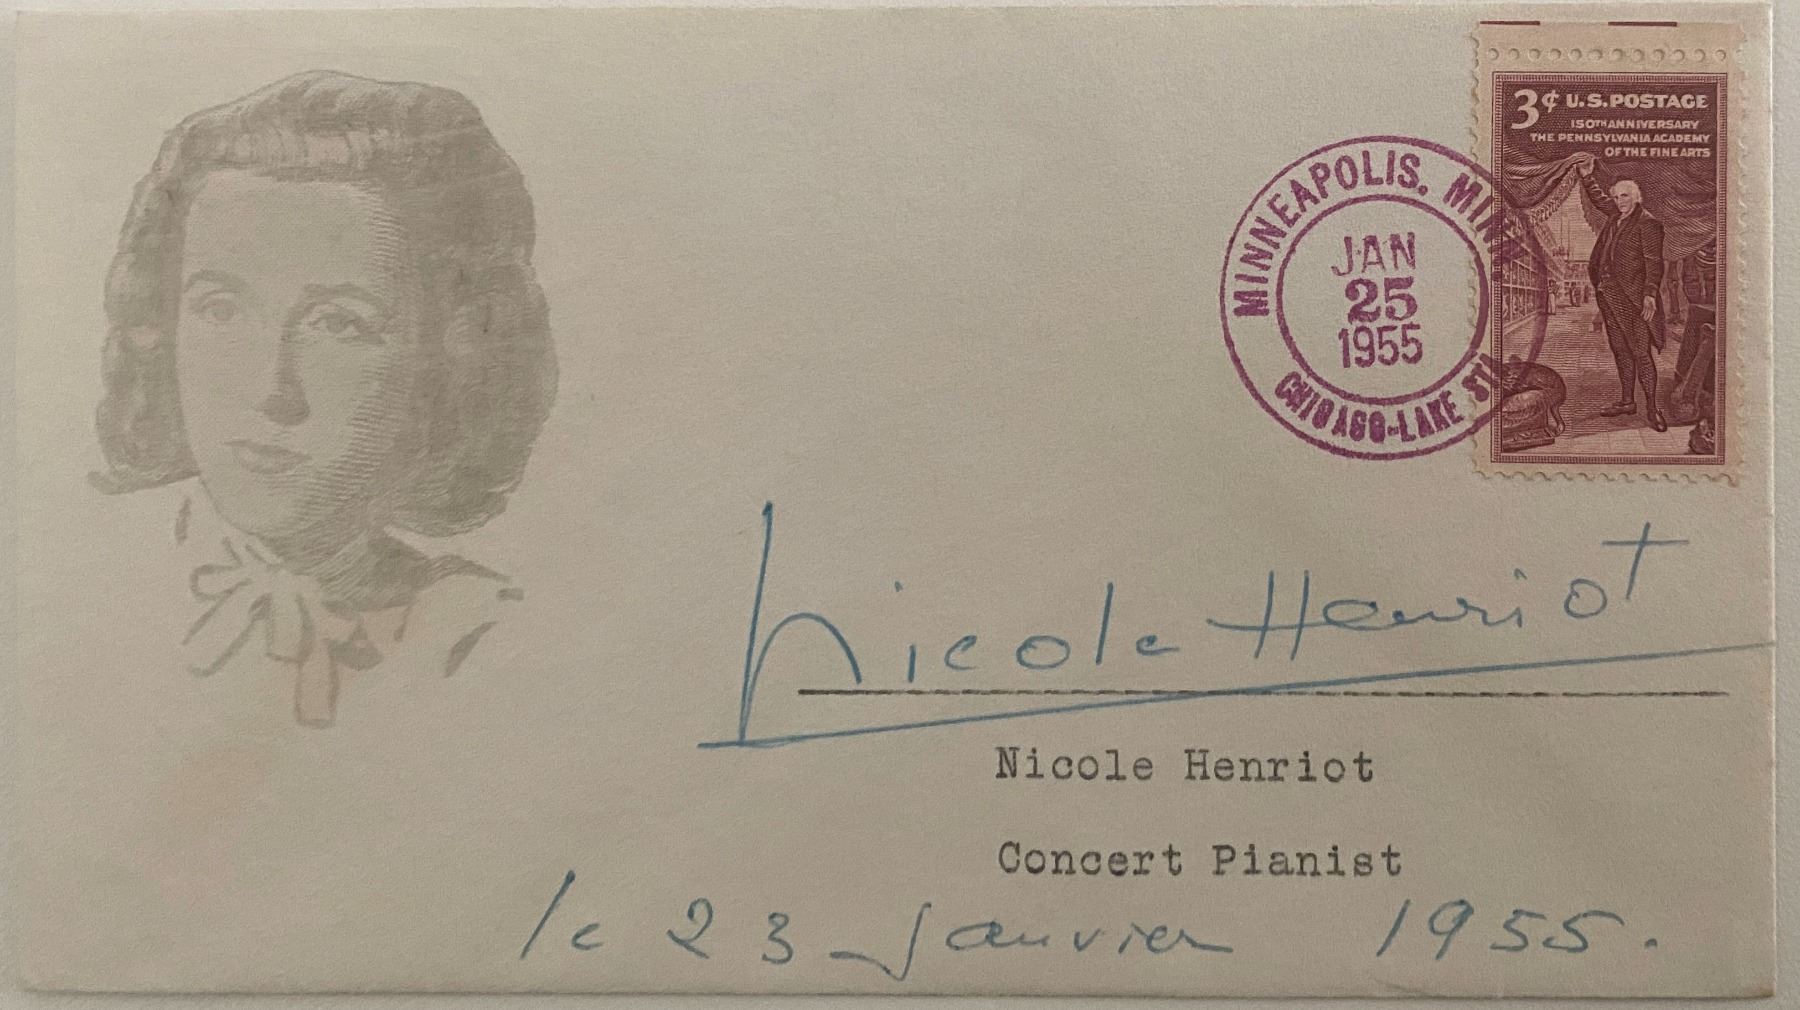 3¢ U.S. POSTAGE
150TH ANNIVERSARY
THE PENNSYLVANIA ACADEMY
OF THE FINE ARTS
MINNEAPOLIS. MINN.
JAN
25
1955
CHICAGO-LAKE STA.
Nicole Henriot
Nicole Henriot
Concert Pianist
le 23 Janvier 1955.